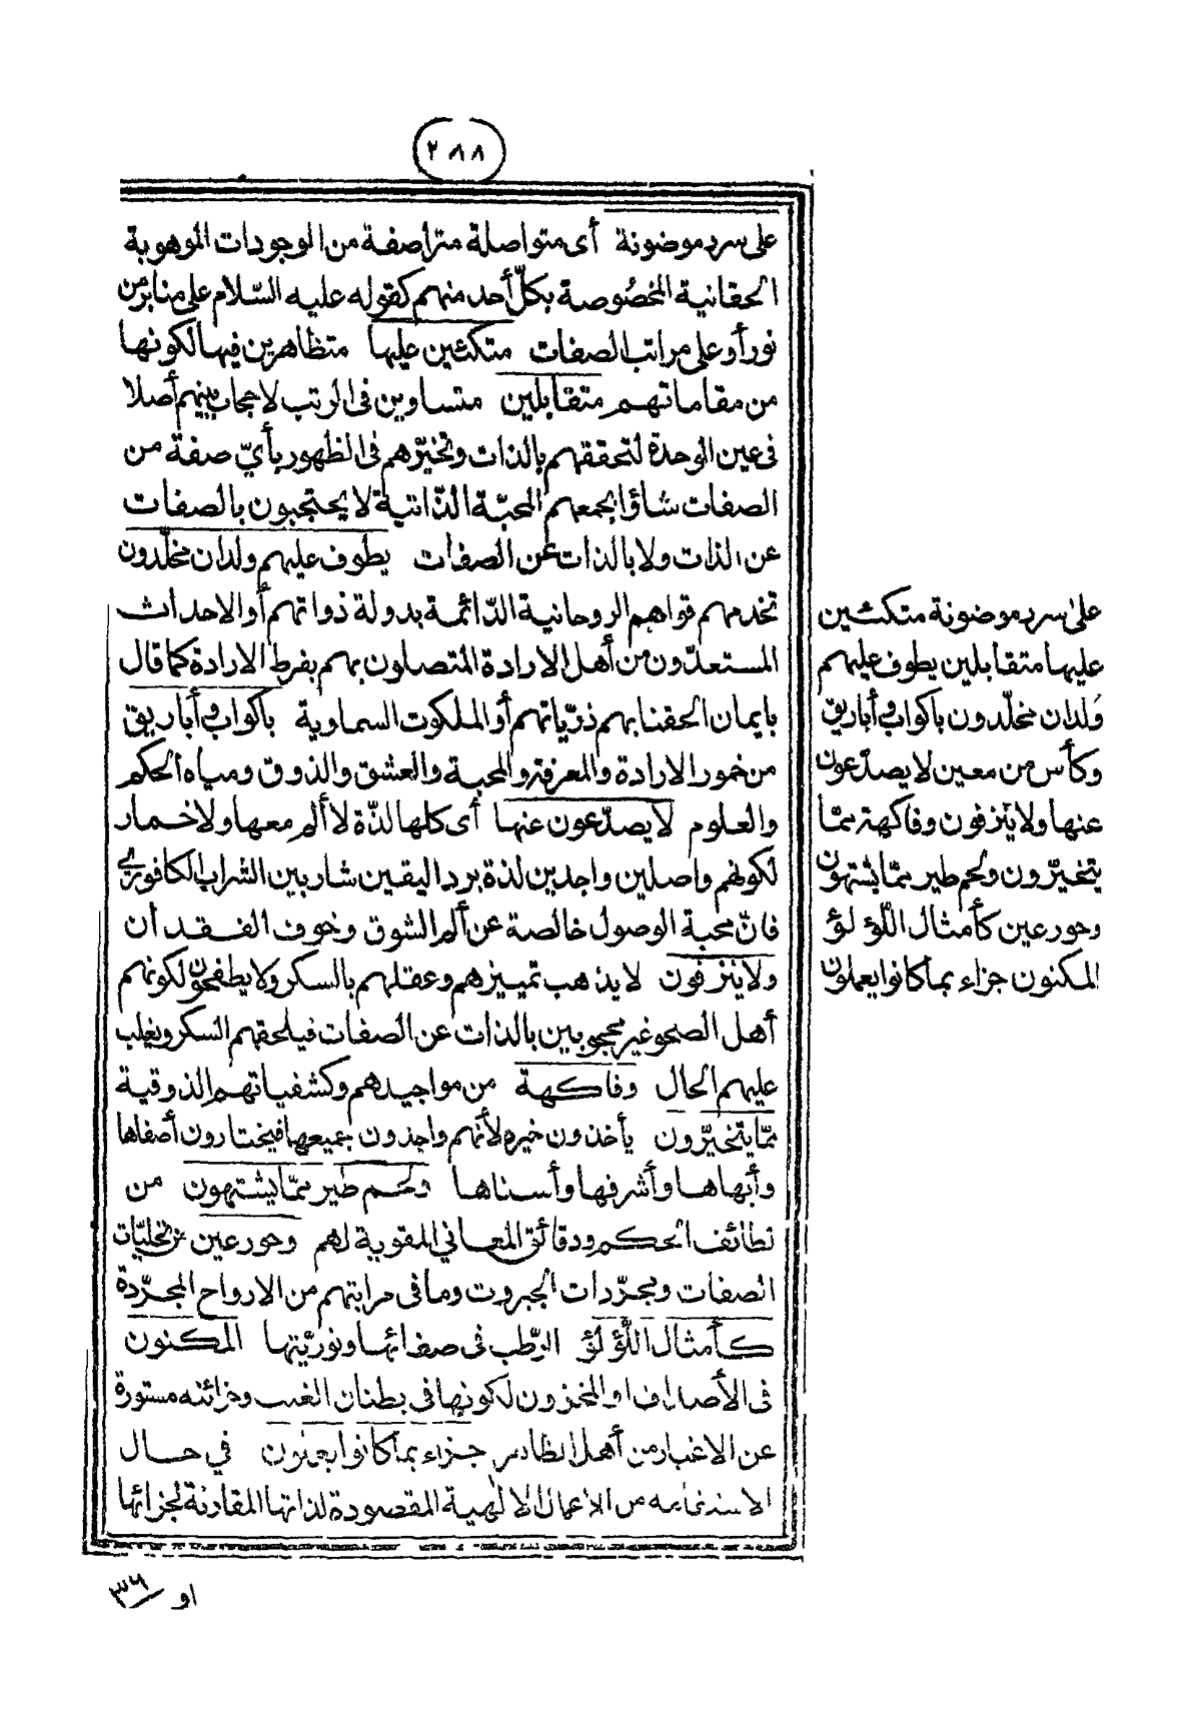 ٢٨٨
على سرر موضونة أى متواصلة متراصفة من الوجودات الموهوبة
الحقانية المخصُوصة بكلّ أحد منهم كقوله عليه السّلام على منابر من
نور أو على مراتب الصفات متكئين عليها متظاهرين فيها لكونها
من مقاماتهم متقابلين متساوين فى الرتب لا حجاب بينهم أصلا
فى عين الوحدة لتحققهم بالذات وتخيّرهم فى الظهور بأيّ صفة من
الصفات شاؤا بجمعهم المحبّة الذّاتية لا يحتجبون بالصفات
عن الذات ولا بالذات عن الصفات يطوف عليهم ولدان مخلّدون
تخدمهم قواهم الروحانية الدّائمة بدولة ذواتهم أو الاحداث
المستعدّون من أهل الارادة المتصلون بهم بفرط الارادة كما قال
بايمان الحقنا بهم ذرّياتهم أو الملكوت السماوية بأكواب وأباريق
من خمور الارادة والمعرفة والمحبة والعشق والذوق ومياه الحكم
والعلوم لا يصدّعون عنها أى كلها لذّة لا ألم معها ولا خمار
لكونهم واصلين واجدين لذة برد اليقين شاربين الشراب الكافوريّ
فانّ محبة الوصول خالصة عن ألم الشوق وخوف الفقدان
ولا ينزفون لا يذهب تمييزهم وعقلهم بالسكر ولا يطفحون لكونهم
أهل الصحو غير محجوبين بالذات عن الصفات فيلحقهم السكر ويغلب
عليهم الحال وفاكهة من مواجيدهم وكشفياتهم الذوقية
ممّا يتخيّرون يأخذون خيره لأنهم واجدون جميعها فيختارون أصفاها
وأبهاها وأشرفها وأسناها ولحم طير ممّا يشتهون من
لطائف الحكم ودقائق المعاني المقوية لهم وحور عين من تجليّات
الصفات ومجرّدات الجبروت وما فى مراتبهم من الارواح المجرّدة
كأمثال اللّؤلؤ الرّطب فى صفائها ونوريّتها المكنون
فى الأصداف او المخزون لكونها فى بطنان الغيب وخزائنه مستورة
عن الاغيار من أهل الظاهر جزاء بما كانوا يعملون في حال
الاستقامة من الاعمال الالٰهية المقصودة لذاتها المقارنة لجزائها
على سرر موضونة متكئين
عليها متقابلين يطوف عليهم
وُلدان مخلّدون باكواب وأباريق
وكأس من معين لا يصدّعون
عنها ولا ينزفون وفاكهة ممّا
يتخيّرون ولحم طير ممّا يشتهون
وحور عين كأمثال اللّؤلؤ
المكنون جزاء بما كانوا يعملون
او ٣٦